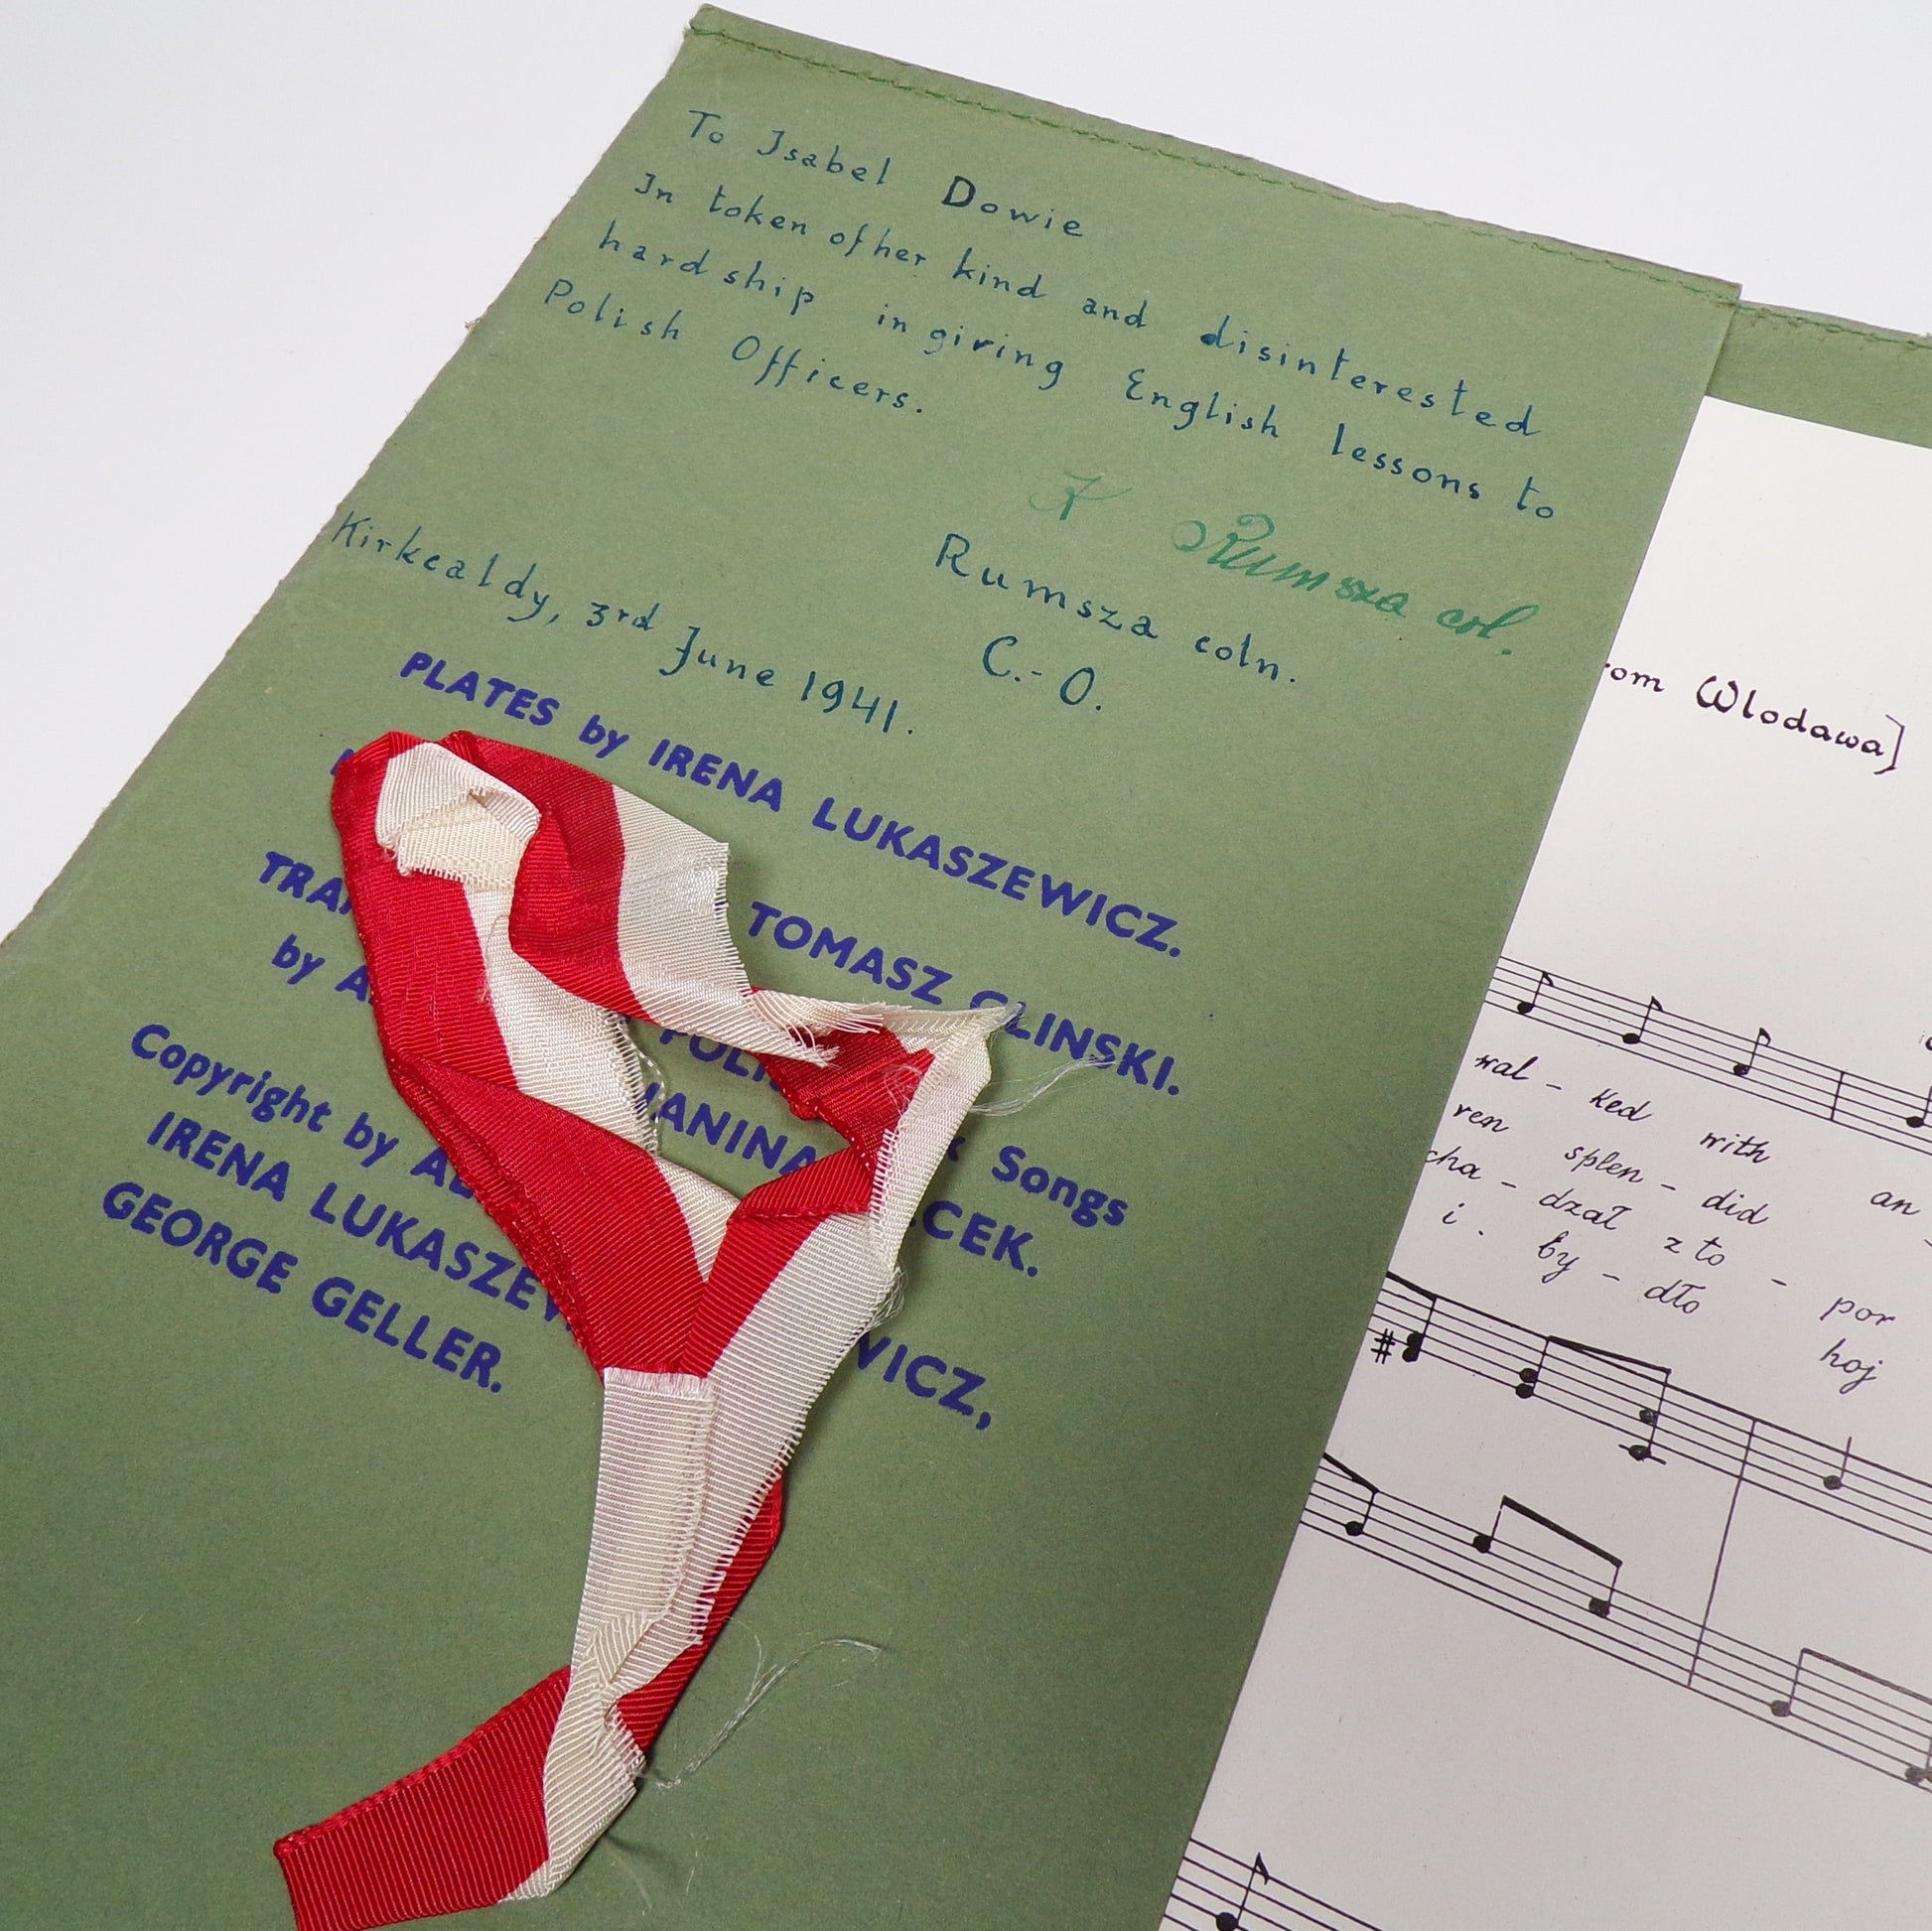 To Isabel Dowie
In token of her kind and disinterested
hardship in giving English lessons to
Polish Officers.
Rumsza col.
Rumsza coln.
C.-O.
Kirkcaldy, 3rd June 1941.
PLATES by IRENA LUKASZEWICZ.
TOMASZ GLINSKI.
Songs
by
JANINA
Copyright by
IRENA LUKASZEWICZ,
GEORGE GELLER.
Wlodawa]
wal - ked with an
ren splen - did
cha - dzał z to - por
i. by - dło hoj